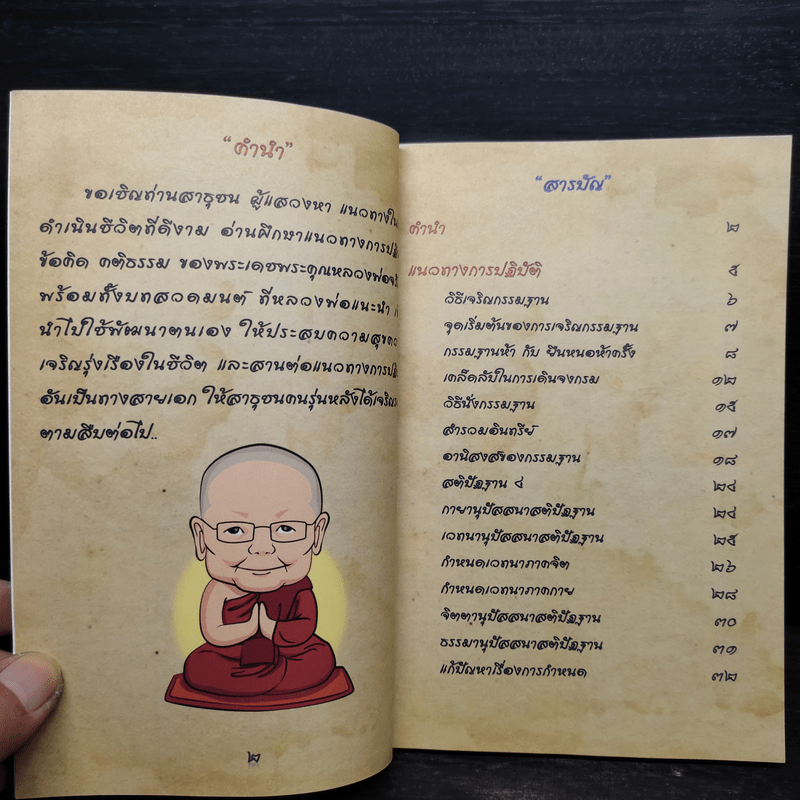 “คำนำ”
ขอเชิญท่านสาธุชน ผู้แสวงหา แนวทางใน
ดำเนินชีวิตที่ดีงาม อ่านศึกษาแนวทางการปฏิ
ข้อคิด คติธรรม ของพระเดชพระคุณหลวงพ่อจรั
พร้อมทั้งบทสวดมนต์ ที่หลวงพ่อแนะนำ
นำไปใช้พัฒนาตนเอง ให้ประสบความสุขคว
เจริญรุ่งเรืองในชีวิต และสานต่อแนวทางการปฏิ
อันเป็นทางสายเอก ให้สาธุชนคนรุ่นหลังได้เจริญร
ตามสืบต่อไป..
๒
“สารบัญ”
คำนำ ๒
แนวทางการปฏิบัติ ๕
วิธีเจริญกรรมฐาน ๖
จุดเริ่มต้นของการเจริญกรรมฐาน ๗
กรรมฐานห้า กับ ยืนหนอห้าครั้ง ๘
เคล็ดลับในการเดินจงกรม ๑๒
วิธีนั่งกรรมฐาน ๑๕
สำรวมอินทรีย์ ๑๗
อานิสงส์ของกรรมฐาน ๑๘
สติปัฏฐาน ๔ ๒๔
กายานุปัสสนาสติปัฏฐาน ๒๔
เวทนานุปัสสนาสติปัฏฐาน ๒๕
กำหนดเวทนาภาคจิต ๒๖
กำหนดเวทนาภาคกาย ๒๘
จิตตานุปัสสนาสติปัฏฐาน ๓๐
ธรรมานุปัสสนาสติปัฏฐาน ๓๑
แก้ปัญหาเรื่องการกำหนด ๓๒